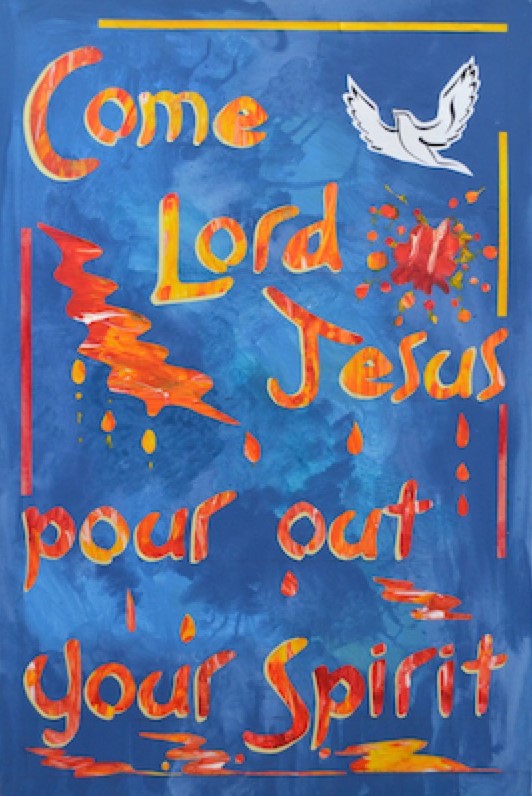 Come
Lord
Jesus
pour out
your Spirit